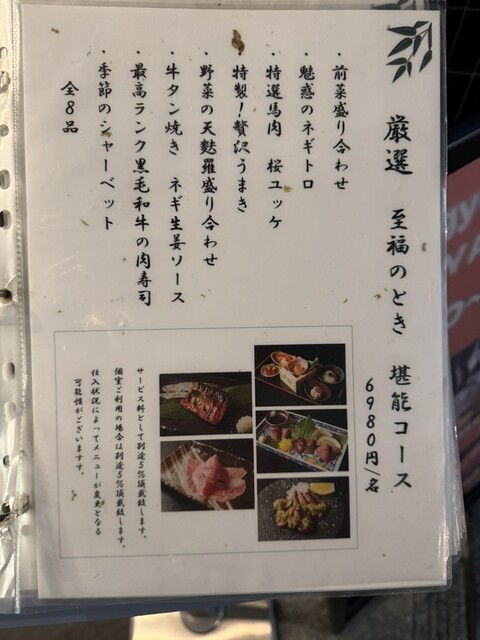 厳選 至福のとき 堪能コース
6980円/名
・前菜盛り合わせ
・魅惑のネギトロ
・特選馬肉 桜ユッケ
特製!贅沢うまき
・野菜の天麩羅盛り合わせ
・牛タン焼き ネギ生姜ソース
・最高ランク黒毛和牛の肉寿司
・季節のシャーベット
全8品
サービス料として別途5%頂戴致します。
個室ご利用の場合は別途5%頂戴致します。
仕入状況によってメニューが変更となる
可能性がございます。